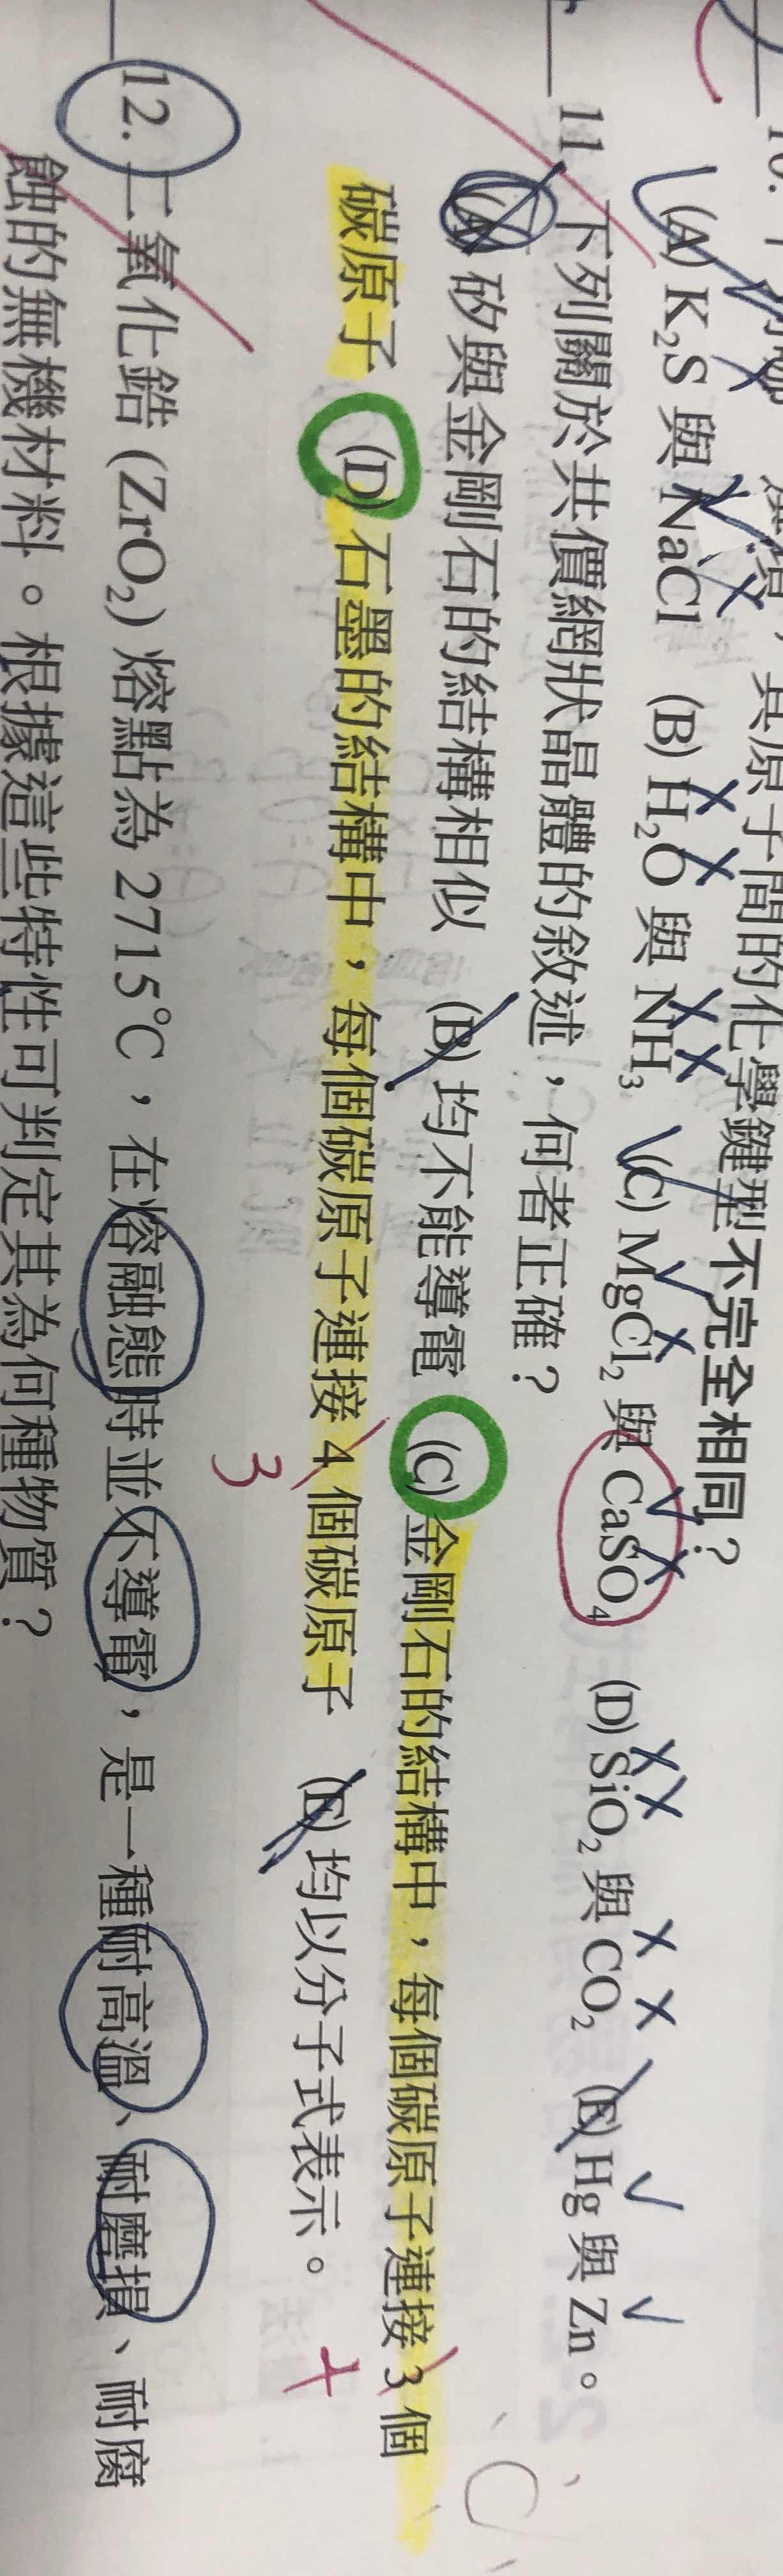 10. 下列哪 其原子間的化學鍵型不完全相同？
(A) K₂S 與 NaCl (B) H₂O 與 NH₃ (C) MgCl₂ 與 CaSO₄ (D) SiO₂ 與 CO₂ (E) Hg 與 Zn。
11. 下列關於共價網狀晶體的敘述，何者正確？
(A) 矽與金剛石的結構相似 (B) 均不能導電 (C) 金剛石的結構中，每個碳原子連接 3 個
4
碳原子 (D) 石墨的結構中，每個碳原子連接 4 個碳原子 (E) 均以分子式表示。
3
12. 二氧化鋯 (ZrO₂) 熔點為 2715℃，在熔融態時並不導電，是一種耐高溫、耐磨損、耐腐
蝕的無機材料。根據這些特性可判定其為何種物質？